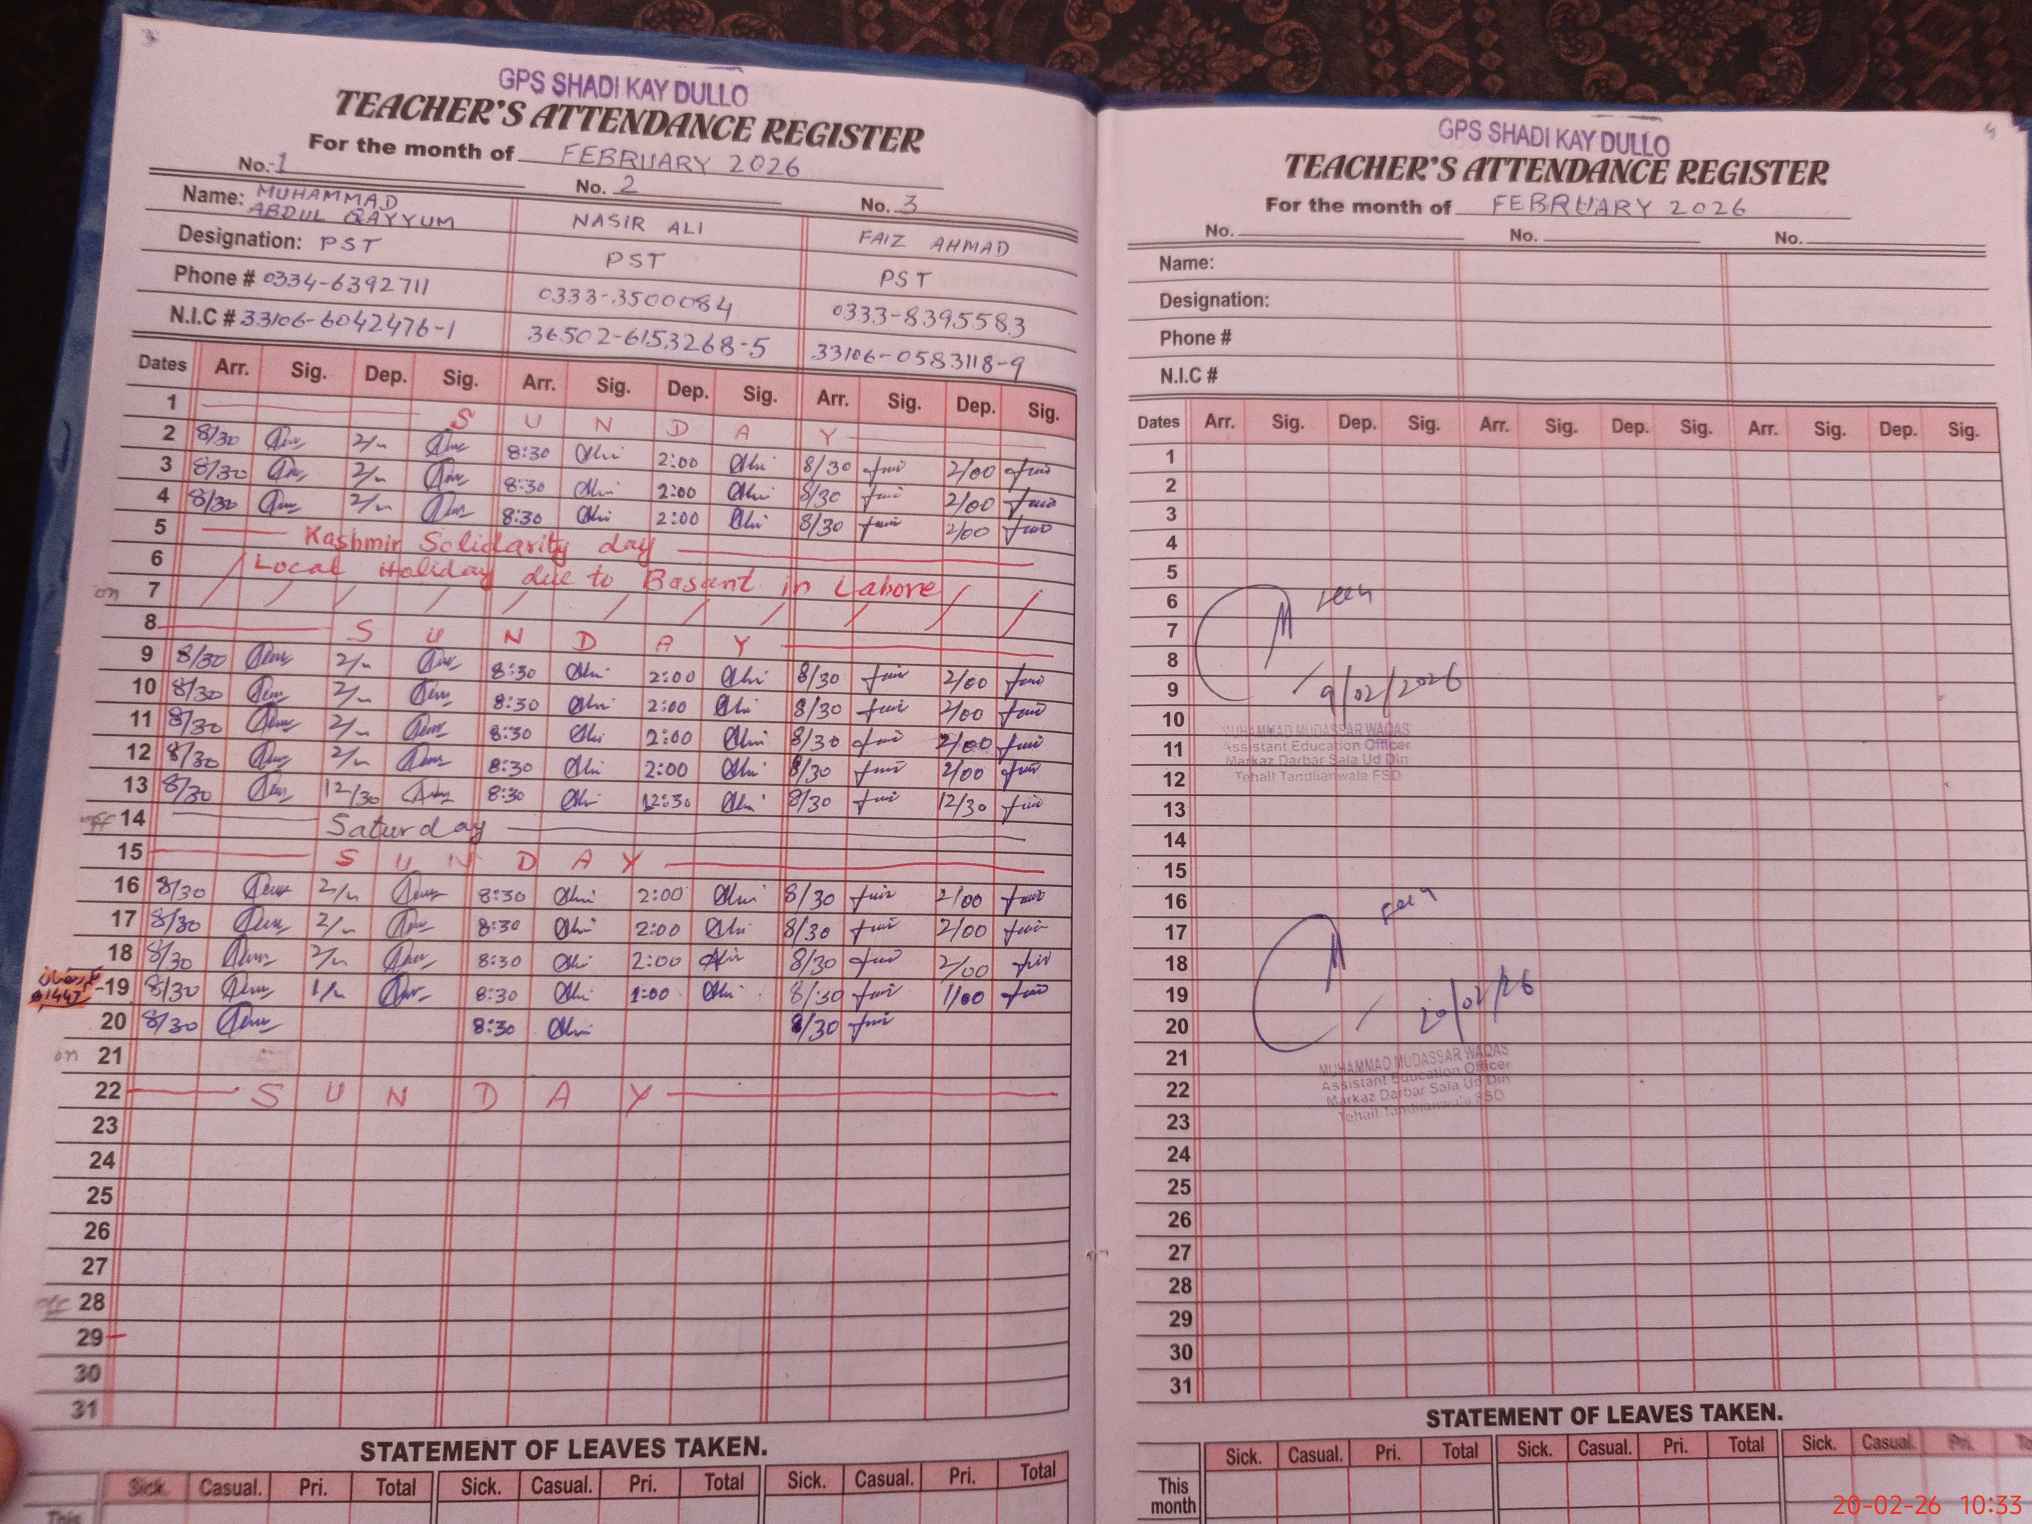 3
GPS SHADI KAY DULLO
TEACHER'S ATTENDANCE REGISTER
For the month of FEBRUARY 2026
No. 1 No. 2 No. 3
Name: MUHAMMAD ABDUL QAYYUM NASIR ALI FAIZ AHMAD
Designation: PST PST PST
Phone # 0334-6392711 0333-3500084 0333-8395583
N.I.C # 33106-6042476-1 36502-6153268-5 33106-0583118-9
Dates Arr. Sig. Dep. Sig. Arr. Sig. Dep. Sig. Arr. Sig. Dep. Sig.
1 SUNDAY
2 8/30 2/ 8:30 2:00 8/30 2/00
3 8/30 2/ 8:30 2:00 8/30 2/00
4 8/30 2/ 8:30 2:00 8/30 2/00
5 Kashmir Solidarity day
6 Local Holiday due to Basant in Lahore
on 7
8 SUNDAY
9 8/30 2/ 8:30 2:00 8/30 2/00
10 8/30 2/ 8:30 2:00 8/30 2/00
11 8/30 2/ 8:30 2:00 8/30 2/00
12 8/30 2/ 8:30 2:00 8/30 2/00
13 8/30 12/30 8:30 12:30 8/30 12/30
off 14 Saturday
15 SUNDAY
16 8/30 2/ 8:30 2:00 8/30 2/00
17 8/30 2/ 8:30 2:00 8/30 2/00
18 8/30 2/ 8:30 2:00 8/30 2/00
19 8/30 1/ 8:30 1:00 8/30 1/00
20 8/30 8:30 8/30
on 21
22 SUNDAY
23
24
25
26
27
off 28
29
30
31
STATEMENT OF LEAVES TAKEN.
Sick. Casual. Pri. Total Sick. Casual. Pri. Total Sick. Casual. Pri. Total
This
GPS SHADI KAY DULLO
TEACHER'S ATTENDANCE REGISTER
For the month of FEBRUARY 2026
No. No. No.
Name:
Designation:
Phone #
N.I.C #
Dates Arr. Sig. Dep. Sig. Arr. Sig. Dep. Sig. Arr. Sig. Dep. Sig.
1
2
3
4
5
6 seen
7
8
9 9/02/2026
10 MUHAMMAD MUDASSAR WAQAS
11 Assistant Education Officer
12 Markaz Darbar Sala Ud Din
Tehail Tandlianwala FSD
13
14
15
16 seen
17
18
19
20 20/02/26
21 MUHAMMAD MUDASSAR WAQAS
Assistant Education Officer
22 Markaz Darbar Sala Ud Din
Tehail Tandlianwala FSD
23
24
25
26
27
28
29
30
31
STATEMENT OF LEAVES TAKEN.
Sick. Casual. Pri. Total Sick. Casual. Pri. Total Sick. Casual. Pri.
This month
20-02-26 10:33